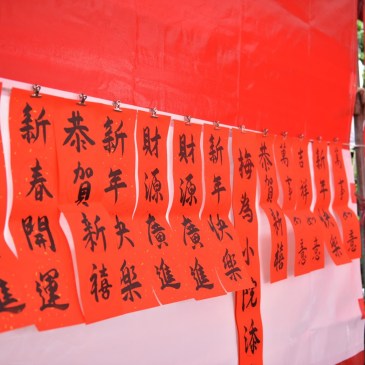 進
新春開運
恭賀新禧
新年快樂
財源廣進
財源廣進
新年快樂
梅為小院添
恭賀新禧
萬事如意
吉祥如意
新年快樂